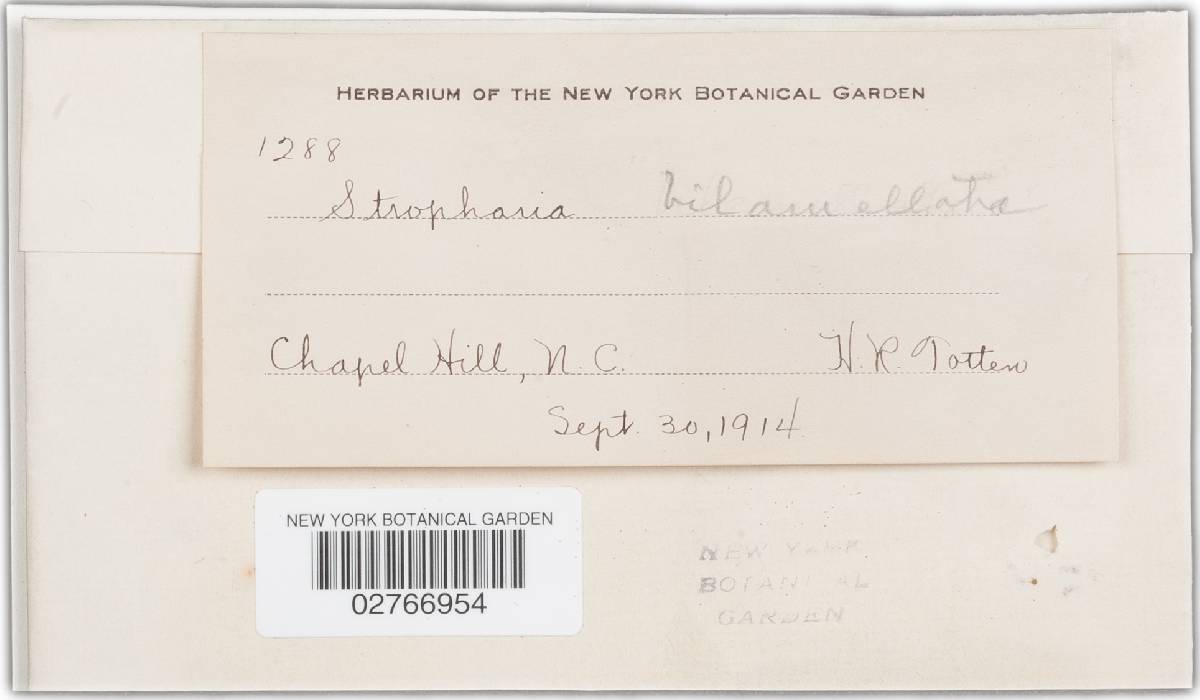 HERBARIUM OF THE NEW YORK BOTANICAL GARDEN
1288
Stropharia bilamellata
Chapel Hill, N. C. H. R. Totten
Sept. 30, 1914
NEW YORK BOTANICAL GARDEN
02766954
NEW YORK
BOTANICAL
GARDEN